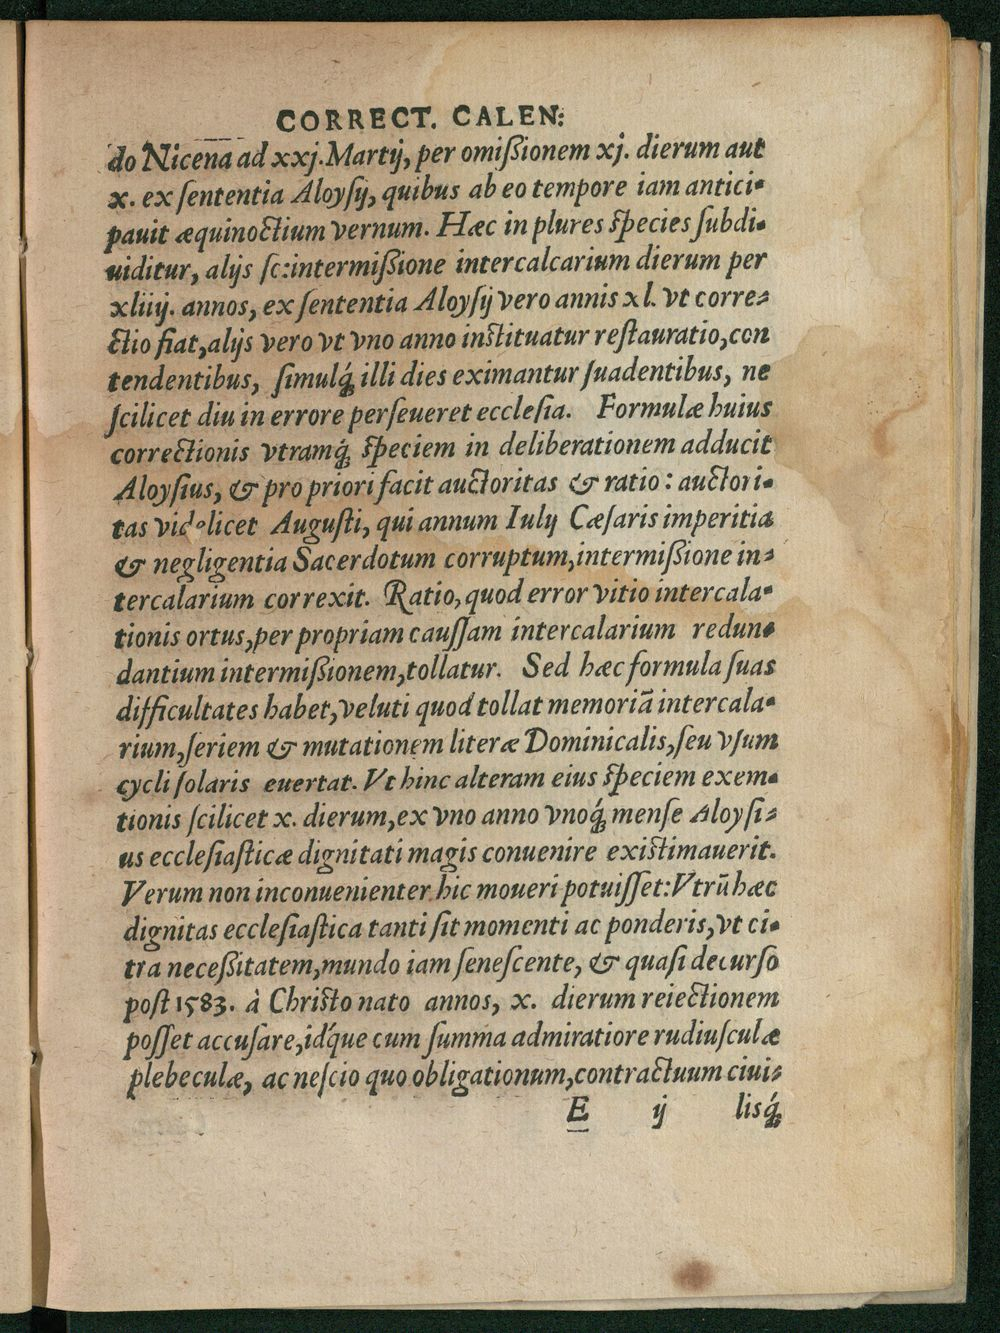 CORRECT. CALEN:
do Nicena ad xxj. Martij, per omißionem xj. dierum aut
x. ex ſententia Aloyſij, quibus ab eo tempore iam antici-
pauit æquinoctium vernum. Hæc in plures ſpecies ſubdi-
uiditur, alijs ſc: intermißione intercalcarium dierum per
xliiij. annos, ex ſententia Aloyſij vero annis xl. vt corre-
ctio fiat, alijs vero vt vno anno inſtituatur reſtauratio, con
tendentibus, ſimulq́ illi dies eximantur ſuadentibus, ne
ſcilicet diu in errore perſeueret eccleſia. Formulæ huius
correctionis vtramq́ ſpeciem in deliberationem adducit
Aloyſius, & pro priori facit auctoritas & ratio: auctori-
tas videlicet Auguſti, qui annum Iulij Cæſaris imperitia
& negligentia Sacerdotum corruptum, intermißione in-
tercalarium correxit. Ratio, quod error vitio intercala-
tionis ortus, per propriam cauſſam intercalarium redun-
dantium intermißionem, tollatur. Sed hæc formula ſuas
difficultates habet, veluti quod tollat memoriã intercala-
rium, ſeriem & mutationem literæ Dominicalis, ſeu vſum
cycli ſolaris euertat. Vt hinc alteram eius ſpeciem exem-
tionis ſcilicet x. dierum, ex vno anno vnoq́ menſe Aloyſi-
us eccleſiaſticæ dignitati magis conuenire exiſtimauerit.
Verum non inconuenienter hic moueri potuiſſet: Vtrũ hæc
dignitas eccleſiaſtica tanti ſit momenti ac ponderis, vt ci-
tra neceßitatem, mundo iam ſeneſcente, & quaſi decurſo
poſt 1583. à Chriſto nato annos, x. dierum reiectionem
poſſet accuſare, id́que cum ſumma admiratiore rudiuſculæ
plebeculæ, ac neſcio quo obligationum, contractuum ciui-
E ij lisq́